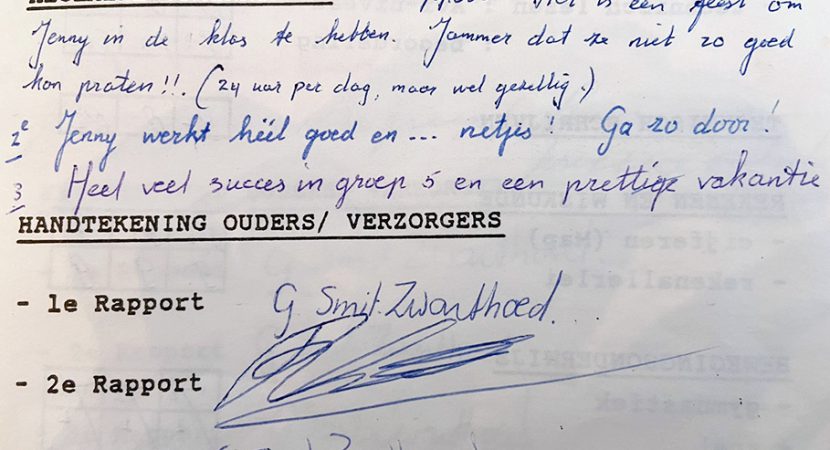 is een feest om
Jenny in de klas te hebben. Jammer dat ze niet zo goed
kon praten!!. (24 uur per dag, maar wel gezellig.)
2e Jenny werkt héél goed en --- netjes! Ga zo door!
3 Heel veel succes in groep 5 en een prettige vakantie
HANDTEKENING OUDERS/ VERZORGERS
- 1e Rapport G Smit-Zwarthoed.
- 2e Rapport